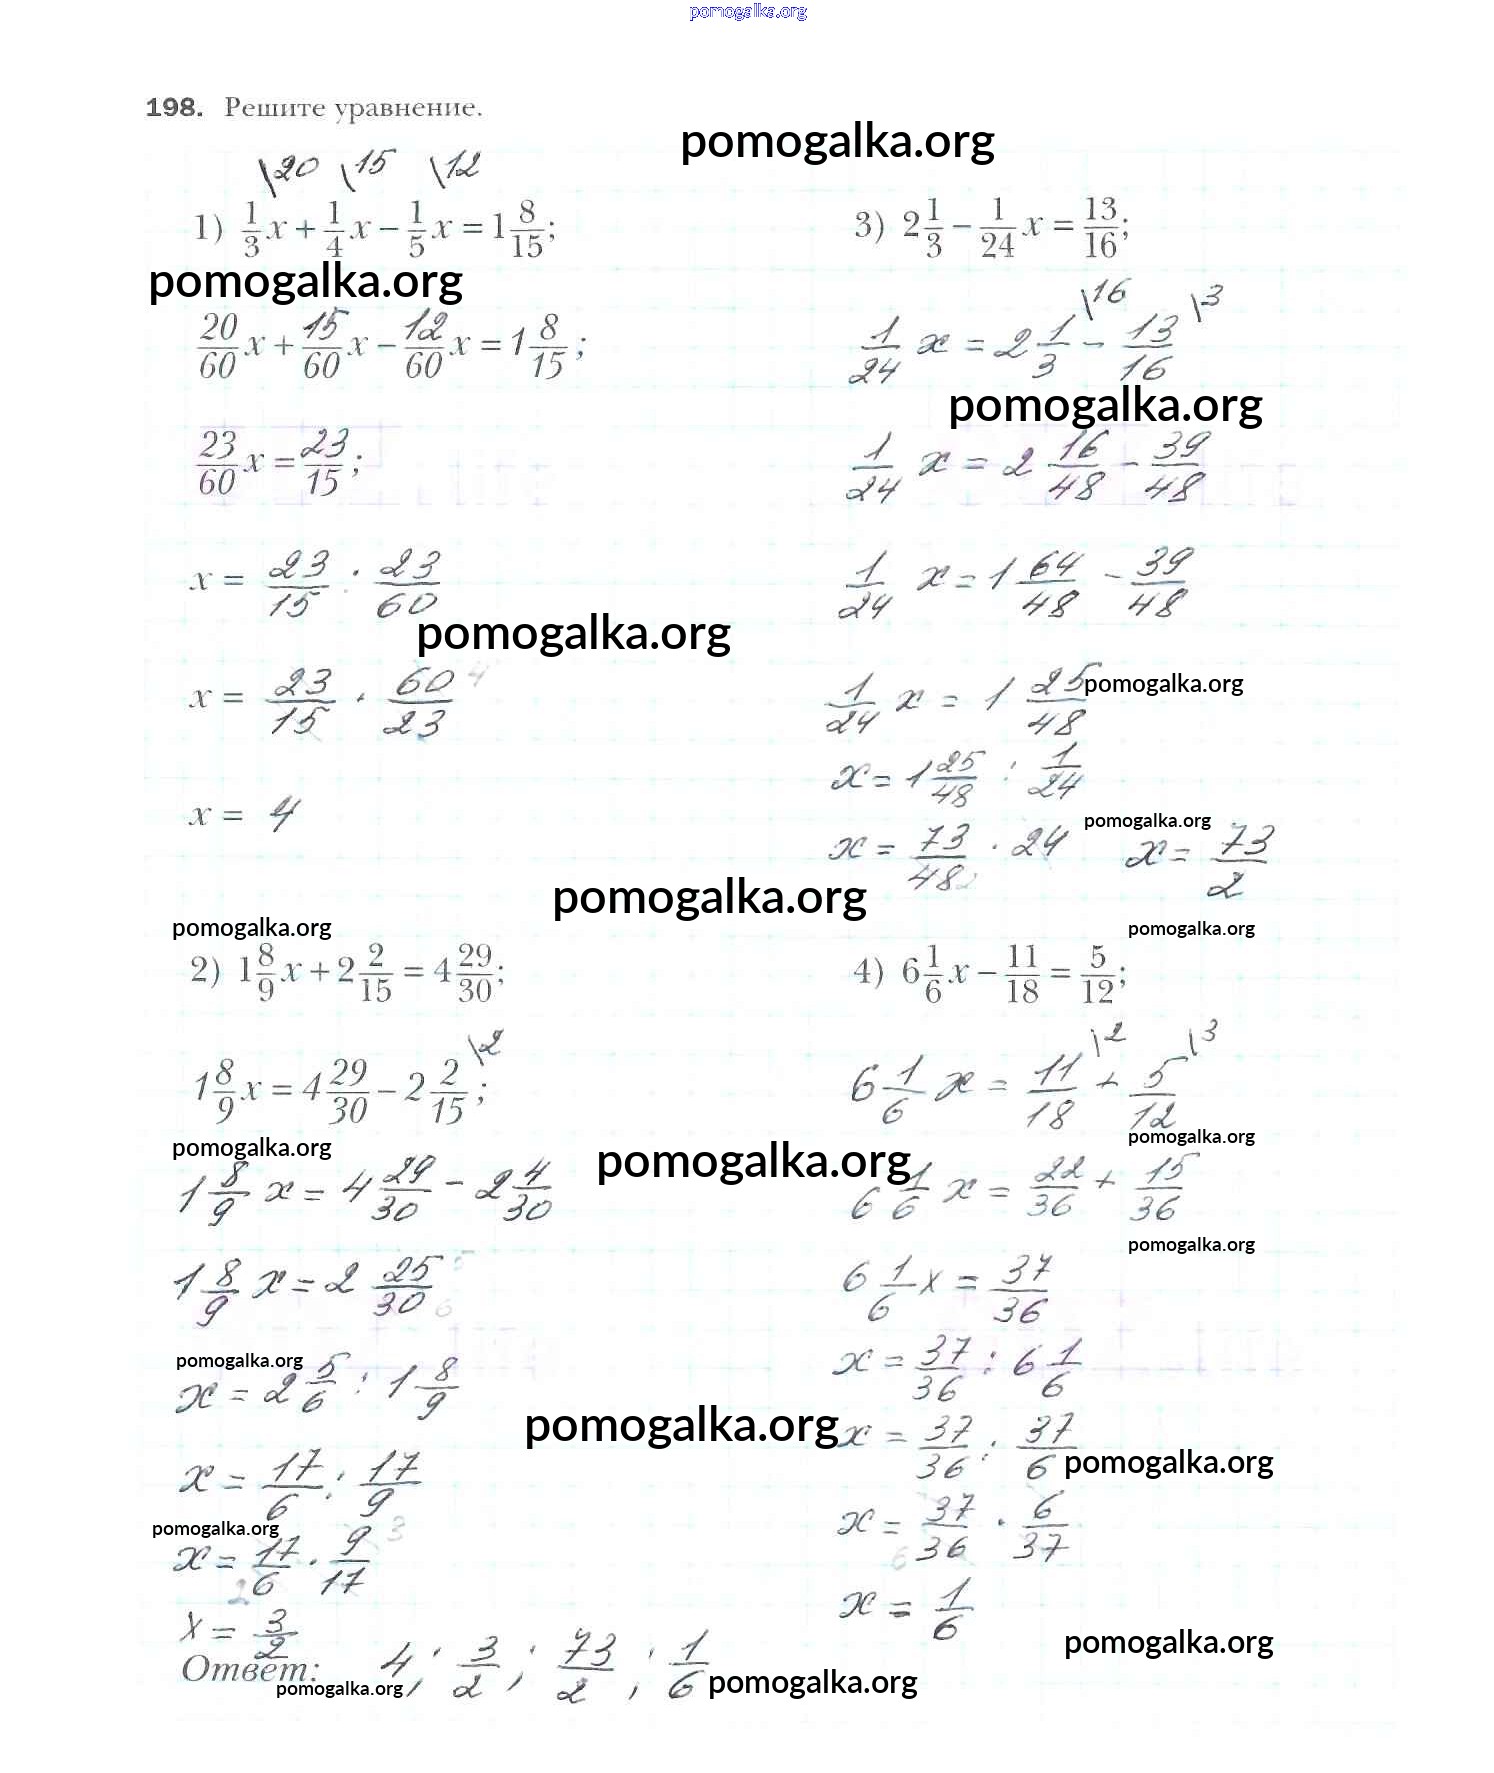 pomogalka.org
198. Решите уравнение.
pomogalka.org
\20 \15 \12
1) 1/3 x + 1/4 x − 1/5 x = 1 8/15;
pomogalka.org
20/60 x + 15/60 x − 12/60 x = 1 8/15;
23/60 x = 23/15;
x = 23/15 · 23/60
pomogalka.org
x = 23/15 · 60/23 4
x = 4
3) 2 1/3 − 1/24 x = 13/16;
\16 \3
1/24 x = 2 1/3 − 13/16
pomogalka.org
1/24 x = 2 16/48 − 39/48
1/24 x = 1 64/48 − 39/48
1/24 x = 1 25/48
pomogalka.org
x = 1 25/48 : 1/24
pomogalka.org
x = 73/48 2 · 24 x = 73/2
pomogalka.org
pomogalka.org
2) 1 8/9 x + 2 2/15 = 4 29/30;
\2
1 8/9 x = 4 29/30 − 2 2/15;
pomogalka.org
pomogalka.org
1 8/9 x = 4 29/30 − 2 4/30
1 8/9 x = 2 25/30 5 6
pomogalka.org
x = 2 5/6 : 1 8/9
pomogalka.org
x = 17/6 : 17/9
pomogalka.org
x = 17/6 · 9/17 3 2
x = 3/2
pomogalka.org
4) 6 1/6 x − 11/18 = 5/12;
\2 \3
6 1/6 x = 11/18 + 5/12
pomogalka.org
6 1/6 x = 22/36 + 15/36
pomogalka.org
6 1/6 x = 37/36
x = 37/36 : 6 1/6
x = 37/36 : 37/6
pomogalka.org
x = 37/36 · 6/37 6
x = 1/6
pomogalka.org
Ответ: 4; 3/2; 73/2; 1/6
pomogalka.org
pomogalka.org